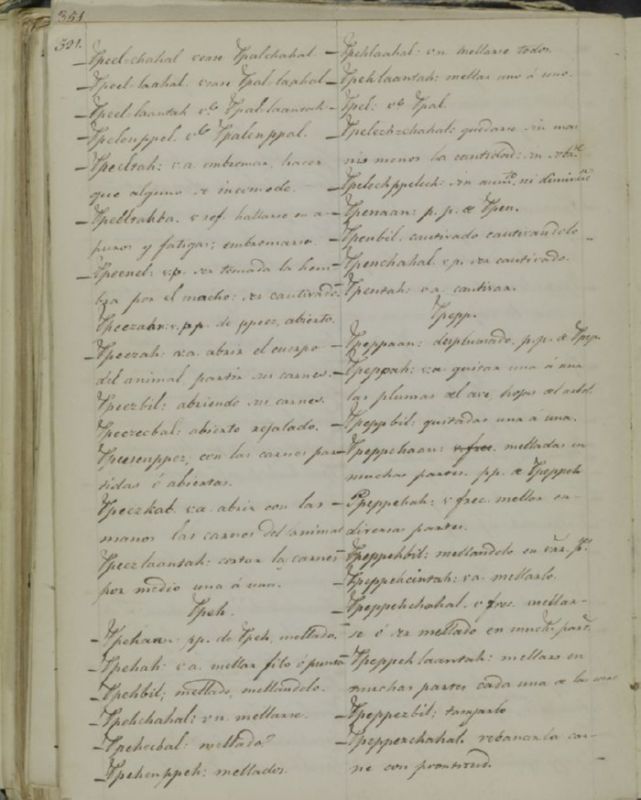 351
391.
Ppeel-chahal vease Ppalchahal.
Ppeel-laahal vease Ppal-laahal.
Ppeel-laantah v.e Ppal-laantah.
Ppelenppel. v.e Ppalenppal.
Ppeeltah: v.a. embromar, hacer
que alguno se incomode.
Ppeeltahba. v ref. hallarse en a-
puros y fatigas; embromarse.
Ppeenel: v.p. ser tomada la hem-
bra por el macho: ser cautivado.
Ppeezaan: v. pp. de ppeez, abierto.
Ppeezah: v.a. abrir el cuerpo
del animal, partir sus carnes.
Ppeezbil: abriendo sus carnes.
Ppeezecbal: abierto rejalado.
Ppeezenppez, con las carnes par-
tidas é abiertas.
Ppeezkab. v.a. abrir con las
manos las carnes del animal
Ppeezlaantah: cortar la carnes
por medio una á una.
Ppeh.
Ppehaan: pp. de Ppeh, mellado.
Ppehah: v.a. mellar filo ó punta
Ppehbil; mellado, mellandolo.
Ppehchahal: v.n. mellarse.
Ppehecbal: mellado.
Ppehenppeh: mellados.
Ppehlaahal: v.n. mellarse todos.
Ppehlaantah: mellar uno á uno.
Ppel: v.e Ppal.
Ppelechchahal: quedarse sin ma-
nis menos la cantidad: sin
Ppelechppelech: sin ni
Ppenaan: p. p. de Ppen.
Ppenbil. cautivado cautivandolo
Ppenchahal. v.p. ser cautivado.
Ppentah: v.a. cautivar.
Ppepp.
Ppeppaan: desplumado. p.p. de Ppepp.
Ppeppah: v.a. quitar una á una
las plumas del ave, hojas del arbol.
Ppeppbil: quitadas una á una.
Ppeppehaan: v. frec. melladas en
muchas partes. pp. de Ppeppeh
Ppeppehah: v frec. mellar en
diversas partes.
Ppeppehbil; mellandolo en
Ppeppehcintah: v.a. mellarlo.
Ppeppehchahal. v frec. mellar-
se ó ser mellado en much. part.
Ppeppehlaantah: mellars en
muchas partes cada una de las
Ppeppezbil: tasajarlo
Ppeppezchahal. rebanar la car-
ne con prontitud.